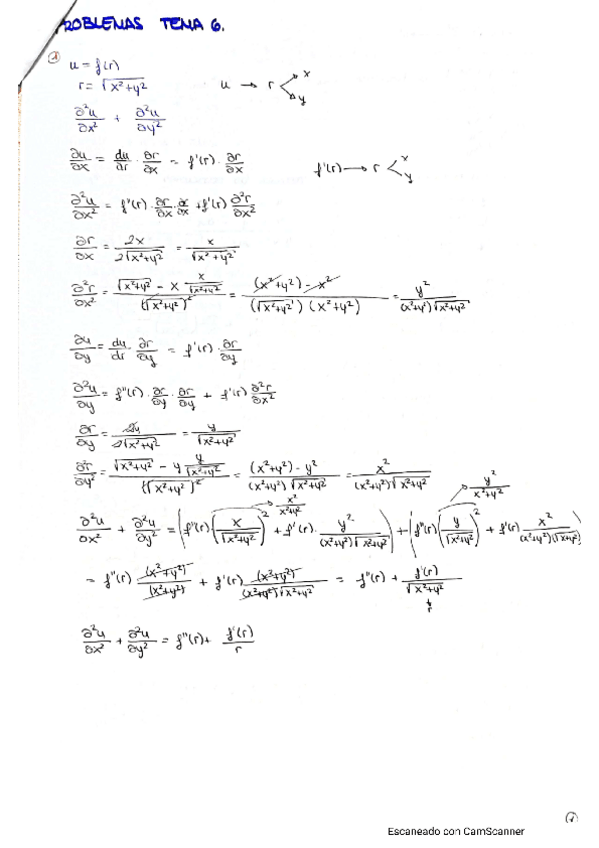 PROBLEMAS TEMA 6.
① u = f(r)
r = √(x²+y²)
u → r < x y
∂²u/∂x² + ∂²u/∂y²
∂u/∂x = du/dr · ∂r/∂x = f'(r) · ∂r/∂x
f'(r) → r < x y
∂²u/∂x² = f''(r) · ∂r/∂x · ∂r/∂x + f'(r) ∂²r/∂x²
∂r/∂x = 2x/(2√(x²+y²)) = x/√(x²+y²)
∂²r/∂x² = (√(x²+y²) - x x/√(x²+y²))/(√(x²+y²))² = ((x²+y²) - x²)/((√(x²+y²))(x²+y²)) = y²/((x²+y²)√(x²+y²))
∂u/∂y = du/dr · ∂r/∂y = f'(r) · ∂r/∂y
∂²u/∂y = f''(r) · ∂r/∂y · ∂r/∂y + f'(r) ∂²r/∂x²
∂r/∂y = 2y/(2√(x²+y²)) = y/√(x²+y²)
∂²r/∂y² = (√(x²+y²) - y y/√(x²+y²))/(√(x²+y²))² = ((x²+y²) - y²)/((x²+y²)√(x²+y²)) = x²/((x²+y²)√(x²+y²))
x²/(x²+y²)
y²/(x²+y²)
∂²u/∂x² + ∂²u/∂y² = (f''(r)(x/√(x²+y²))² + f'(r) · y²/((x²+y²)√(x²+y²))) + (f''(r)(y/√(x²+y²))² + f'(r) x²/((x²+y²)(√(x²+y²))))
= f''(r) (x²+y²)/(x²+y²) + f'(r) (x²+y²)/((x²+y²)√(x²+y²)) = f''(r) + f'(r)/√(x²+y²)
r
∂²u/∂x² + ∂²u/∂y² = f''(r) + f'(r)/r
①
Escaneado con CamScanner